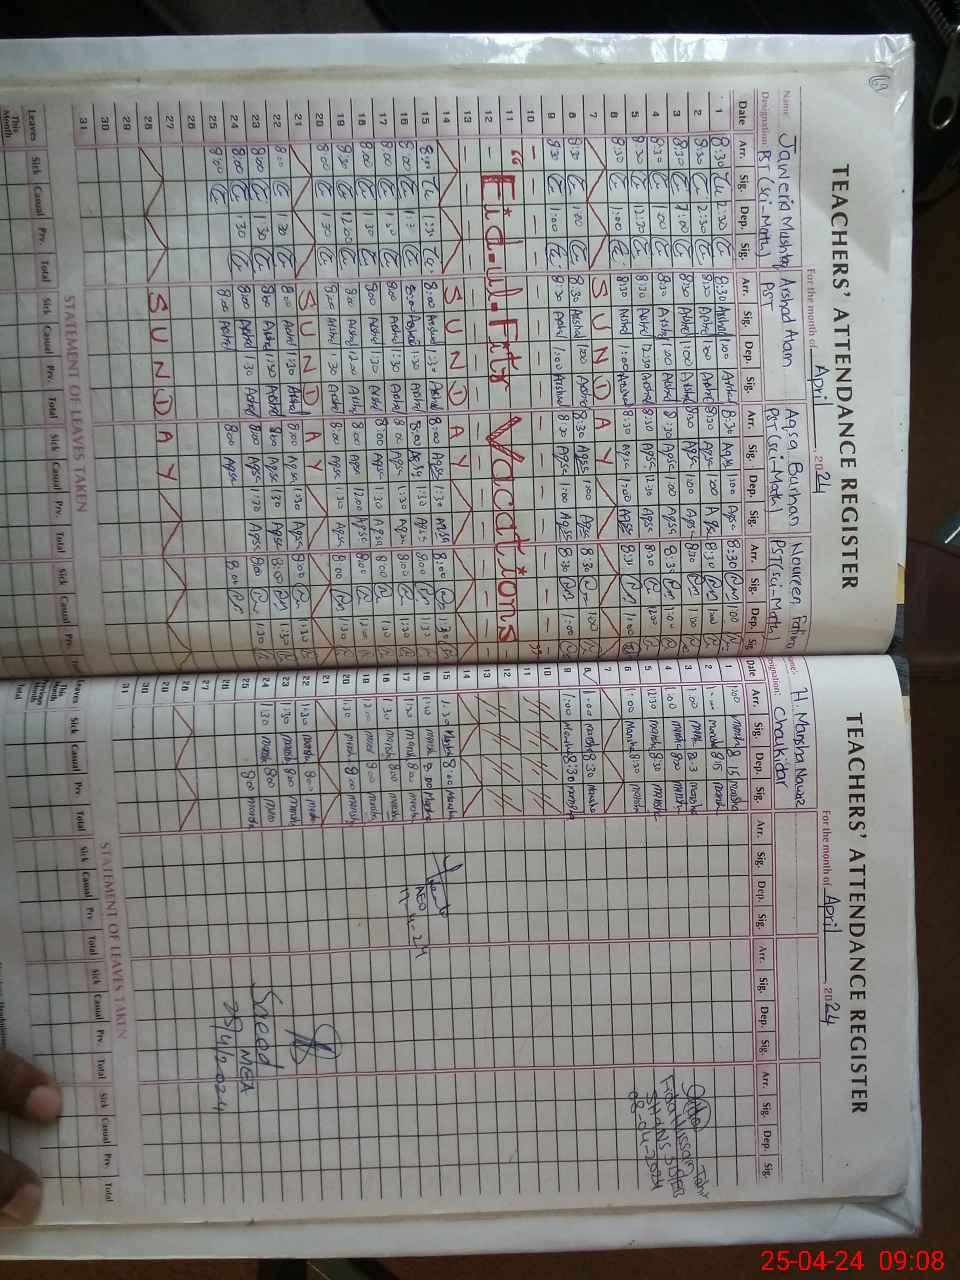 69
TEACHERS' ATTENDANCE REGISTER
For the month of April 2024
Name: Jaweria Mushtaq Arshad Alam Aqsa Burhan Noureen Fatima
Designation: PST (Sci-Math) PST PST (Sci-Math) PST (Sci-Math)
Date Arr. Sig. Dep. Sig. Arr. Sig. Dep. Sig. Arr. Sig. Dep. Sig. Arr. Sig. Dep. Sig.
1 8:30 2:30 8:30 Arshad 1:00 Arshad 8:30 Aqsa 1:00 Aqsa 8:30 1:00
2 8:30 2:30 8:30 Arshad 1:00 Arshad 8:30 Aqsa 1:00 Aqsa 8:30 1:00
3 8:30 1:00 8:30 Arshad 1:00 Arshad 8:30 Aqsa 1:00 Aqsa 8:30 1:00
4 8:30 1:00 8:30 Arshad 1:00 Arshad 8:30 Aqsa 1:00 Aqsa 8:30 1:00
5 8:30 12:30 8:30 Arshad 12:30 Arshad 8:30 Aqsa 12:30 Aqsa 8:30
6 8:30 1:00 8:30 Arshad 1:00 Arshad 8:30 Aqsa 1:00 Aqsa 8:30 1:00
7 SUNDAY
8 8:30 1:00 8:30 Arshad 1:00 Arshad 8:30 Aqsa 1:00 Aqsa 8:30 1:00
9 8:30 1:00 8:30 Arshad 1:00 Arshad 8:30 Aqsa 1:00 Aqsa 8:30 1:00
10
11 "Eid-ul-Fitr Vacations"
12
13
14 SUNDAY
15 8:00 1:30 8:00 Arshad 1:30 Arshad 8:00 Aqsa 1:30 Aqsa 8:00 1:30
16 8:00 1:30 8:00 Arshad 1:30 Arshad 8:00 Aqsa 1:30 Aqsa 8:00 1:30
17 8:00 1:30 8:00 Arshad 1:30 Arshad 8:00 Aqsa 1:30 Aqsa 8:00 1:30
18 8:00 1:30 8:00 Arshad 1:30 Arshad 8:00 Aqsa 1:30 Aqsa 8:00 1:30
19 8:30 12:00 8:00 Arshad 12:00 Arshad 8:00 Aqsa 12:00 Aqsa 8:00 12:00
20 8:00 1:30 8:00 Arshad 1:30 Arshad 8:00 Aqsa 1:30 Aqsa 8:00 1:30
21 SUNDAY
22 8:00 1:30 8:00 Arshad 1:30 Arshad 8:00 Aqsa 1:30 Aqsa 8:00 1:30
23 8:00 1:30 8:00 Arshad 1:30 Arshad 8:00 Aqsa 1:30 Aqsa 8:00 1:30
24 8:00 1:30 8:00 Arshad 1:30 Arshad 8:00 Aqsa 1:30 Aqsa 8:00 1:30
25 8:00 8:00 Arshad 8:00 Aqsa 8:00
26
27
28 SUNDAY
29
30
31
STATEMENT OF LEAVES TAKEN
Leaves Sick Casual Prv. Total Sick Casual Prv. Total Sick Casual Prv. Total Sick Casual Prv. Total
This Month
TEACHERS' ATTENDANCE REGISTER
For the month of April 2024
Name: H. Mansha Nawaz
Designation: Chawkidar
Date Arr. Sig. Dep. Sig. Arr. Sig. Dep. Sig. Arr. Sig. Dep. Sig. Arr. Sig. Dep. Sig.
1 1:00 mansha 8:15 mansha
2 mansha 8:15 mansha
3 1:00 mansha mansha
4 1:00 mansha 8:30 mansha
5 12:30 mansha 8:30 mansha
6 1:00 Mansha 8:30 mansha
7
8 1:00 mansha 8:30 mansha
9 1:00 Mansha 8:30 mansha
10
11
12
13
14
15 1:30 Mansha 8:00 Mansha
16 1:30 mansha 8:00 Mansha
17 1:30 mansha 8:00 mansha
18 1:30 mansha 8:00 mansha
19 12:00 mansha 8:00 mansha
20 1:30 mansha 8:00 mansha
21
22 1:30 mansha 8:00 mansha
23 1:30 mansha 8:00 mansha
24 1:30 mansha 8:00 mansha
25 8:00 mansha
26
27
28
29
30
31
Fida Hussain Tahir
08-04-2024
AEO
17-4-24
Saeed
MEA
25/4/2024
STATEMENT OF LEAVES TAKEN
Leaves Sick Casual Prv. Total Sick Casual Prv. Total Sick Casual Prv. Total Sick Casual Prv. Total
This Month
Previous Month
Total
25-04-24 09:08